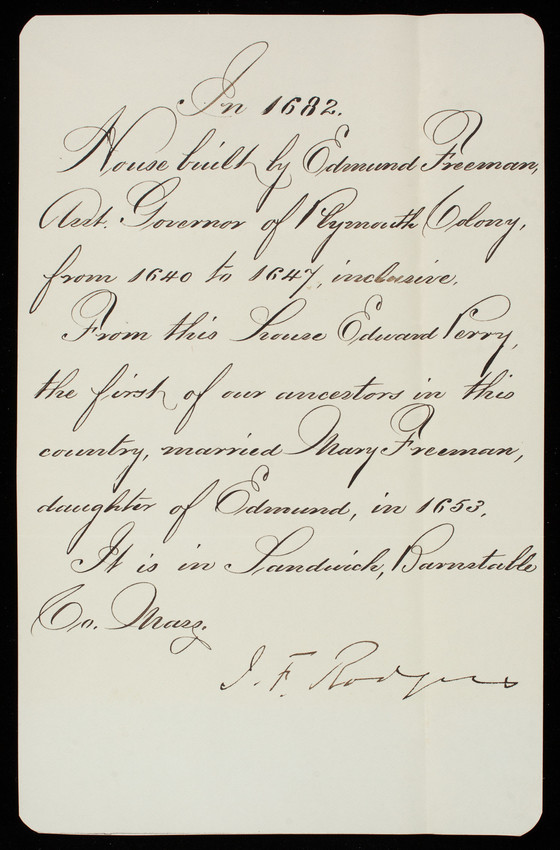 In 1682.
House built by Edmund Freeman,
Asst. Governor of Plymouth Colony,
from 1640 to 1647, inclusive.
From this house Edward Perry,
the first of our ancestors in this
country, married Mary Freeman,
daughter of Edmund, in 1653.
It is in Sandwich, Barnstable
Co. Mass.
J. F. Rodgers